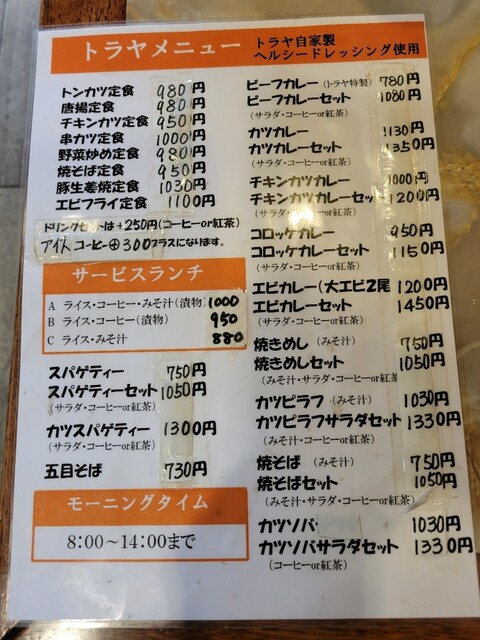 トラヤメニュー
トラヤ自家製
ヘルシードレッシング使用
トンカツ定食 980円
唐揚定食 980円
チキンカツ定食 950円
串カツ定食 1000円
野菜炒め定食 980円
焼そば定食 950円
豚生姜焼定食 1030円
エビフライ定食 1100円
ドリンクセットは+250円(コーヒーor紅茶)
アイスコーヒー⊕300プラスになります。
サービスランチ
A ライス・コーヒー・みそ汁(漬物) 1000
B ライス・コーヒー(漬物) 950
C ライス・みそ汁 880
スパゲティー 750円
スパゲティーセット 1050円
(サラダ・コーヒーor紅茶)
カツスパゲティー 1300円
(サラダ・コーヒーor紅茶)
五目そば 730円
モーニングタイム
8:00~14:00まで
ビーフカレー(トラヤ特製) 780円
ビーフカレーセット 1080円
(サラダ・コーヒーor紅茶)
カツカレー 1130円
カツカレーセット 1350円
(サラダ・コーヒーor紅茶)
チキンカツカレー 1000円
チキンカツカレーセット 1200円
(サラダ・コーヒーor紅茶)
コロッケカレー 950円
コロッケカレーセット 1150円
(サラダ・コーヒーor紅茶)
エビカレー(大エビ2尾 1200円
エビカレーセット 1450円
(サラダ・コーヒーor紅茶)
焼きめし(みそ汁) 750円
焼きめしセット 1050円
(みそ汁・サラダ・コーヒーor紅茶
カツピラフ(みそ汁) 1030円
カツピラフサラダセット 1330円
(みそ汁・コーヒーor紅茶)
焼そば(みそ汁) 750円
焼そばセット 1050円
(みそ汁・サラダ・コーヒーor紅茶)
カツソバ 1030円
カツソバサラダセット 1330円
(コーヒーor紅茶)